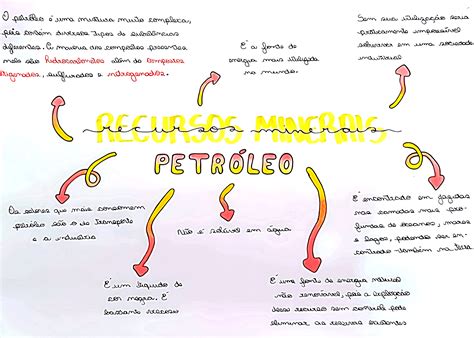 O petróleo é uma mistura muito complexa,
pois contém diversos tipos de substâncias
diferentes. A maioria dos compostos presentes
nele são hidrocarbonetos além de compostos
oxigenados, sulfurados e nitrogenados.
É a fonte de
energia mais utilizada
no mundo.
Sem sua utilização seria
praticamente impossível
sobreviver em uma sociedade
industrial
RECURSOS MINERAIS
PETRÓLEO
Os setores que mais consomem
petróleo são o de transporte
e a indústria
Não é solúvel em água
É encontrado em jazidas
nas camadas mais pro-
fundas de oceanos, mares
e lagos, podendo ser en-
contrado também na terra
É um líquido de
cor negra. É
bastante viscoso
É uma fonte de energia natural
não renovável, pois a exploração
desse recurso sem controle pode
eliminar as reservas existentes